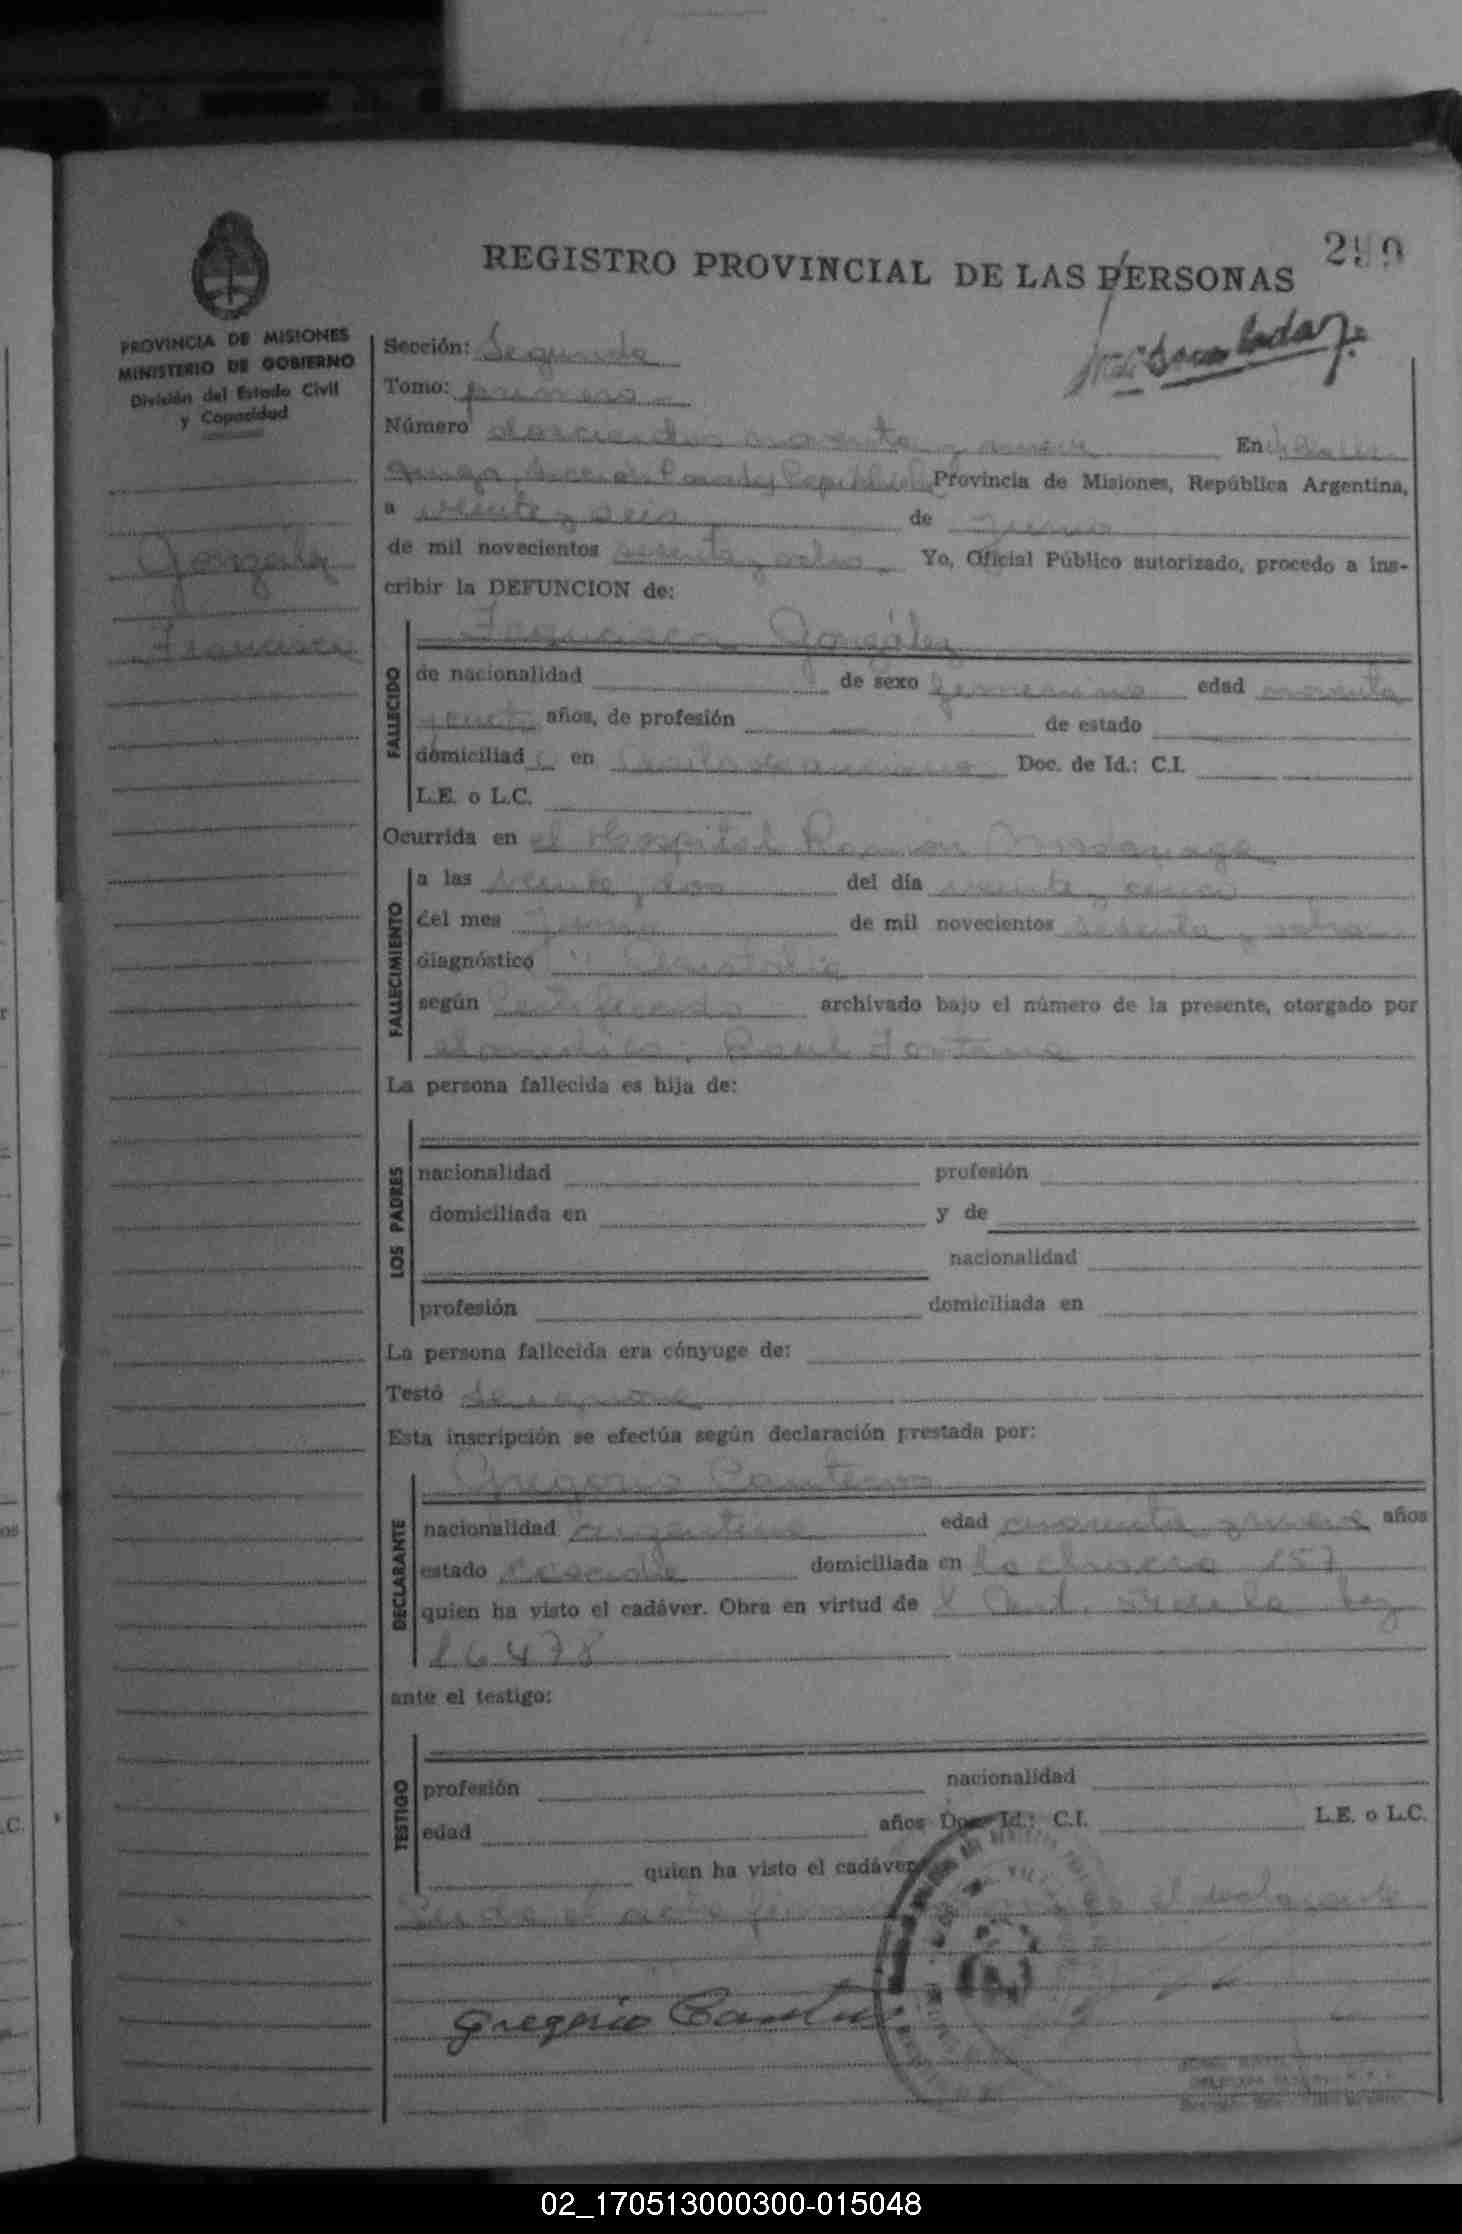 299
REGISTRO PROVINCIAL DE LAS PERSONAS
PROVINCIA DE MISIONES
MINISTERIO DE GOBIERNO
División del Estado Civil
y Capacidad
Gonzalez
Francisca
Sección: Segunda
Tomo: primero
Número doscientos noventa y nueve En Villa
Provincia de Misiones, República Argentina,
a veinte y seis de Junio
de mil novecientos sesenta y ocho Yo, Oficial Público autorizado, procedo a ins-
cribir la DEFUNCION de:
Francisca González
FALLECIDO
de nacionalidad de sexo femenino edad noventa
años, de profesión de estado
domiciliad o en Asilo de ancianos Doc. de Id.: C.I.
L.E. o L.C.
Ocurrida en el Hospital Ramón Madariaga
FALLECIMIENTO
a las veinte y dos del día veinte y cinco
del mes Junio de mil novecientos sesenta y ocho
diagnóstico
según Certificado archivado bajo el número de la presente, otorgado por
el médico, Raul Fontana
La persona fallecida es hija de:
LOS PADRES
nacionalidad profesión
domiciliada en y de
nacionalidad
profesión domiciliada en
La persona fallecida era cónyuge de:
Testó Se ignora
Esta inscripción se efectúa según declaración prestada por:
Gregorio Canteros
DECLARANTE
nacionalidad argentina edad cuarenta y nueve años
estado casado domiciliada en la chacra 157
quien ha visto el cadáver. Obra en virtud de
16478
ante el testigo:
TESTIGO
profesión nacionalidad
edad años Doc. Id.: C.I. L.E. o L.C.
quien ha visto el cadáver
Leida el acta el declarante
Gregorio Canteros
02_170513000300-015048